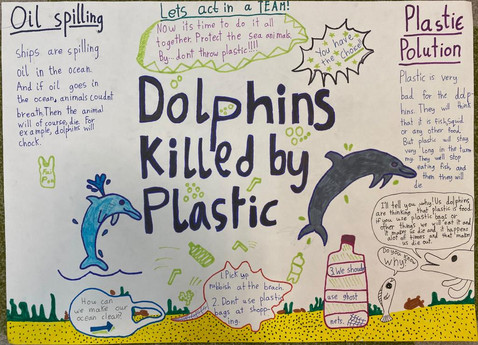 Oil spilling
Ships are spilling
oil in the ocean.
And if oil goes in
the ocean, animals coudnt
breath. Then the animal
will of course, die. For
example, dolphins will
chock.
Lets act in a TEAM!
Now its time to do it all
together. Protect the sea animals
By... dont throw plastic!!!!
You have
the choice!
Plastic
Polution
Plastic is very
bad for the dolp-
hins. They will think
that it is fish, squid
or any other food.
But plastic will stay
very long in the tumm
y. They will stop
eating fish and
then they will
die
Dolphins
Killed by
Plastic
I'll tell you why! Us dolphins
are thinking that plastic is food.
if you use plastic bags or
other things we will eat it and
it makes us die and it happens
alot of times and that makes
us die out.
Do you know
why?
How can
we make our
ocean clean?
1. Pick up
rubbish at the beach.
2. Dont use plastic
bags at shopp-
ing.
3. We should
use ghost
nets.